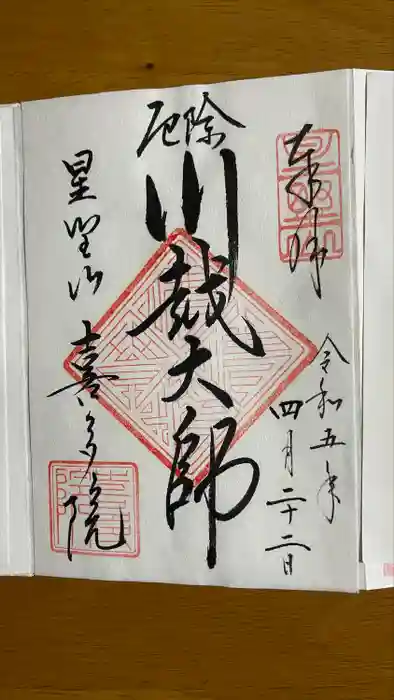 奉拝
令和五年
四月二十二日
厄除
川越大師
星野山
喜多院